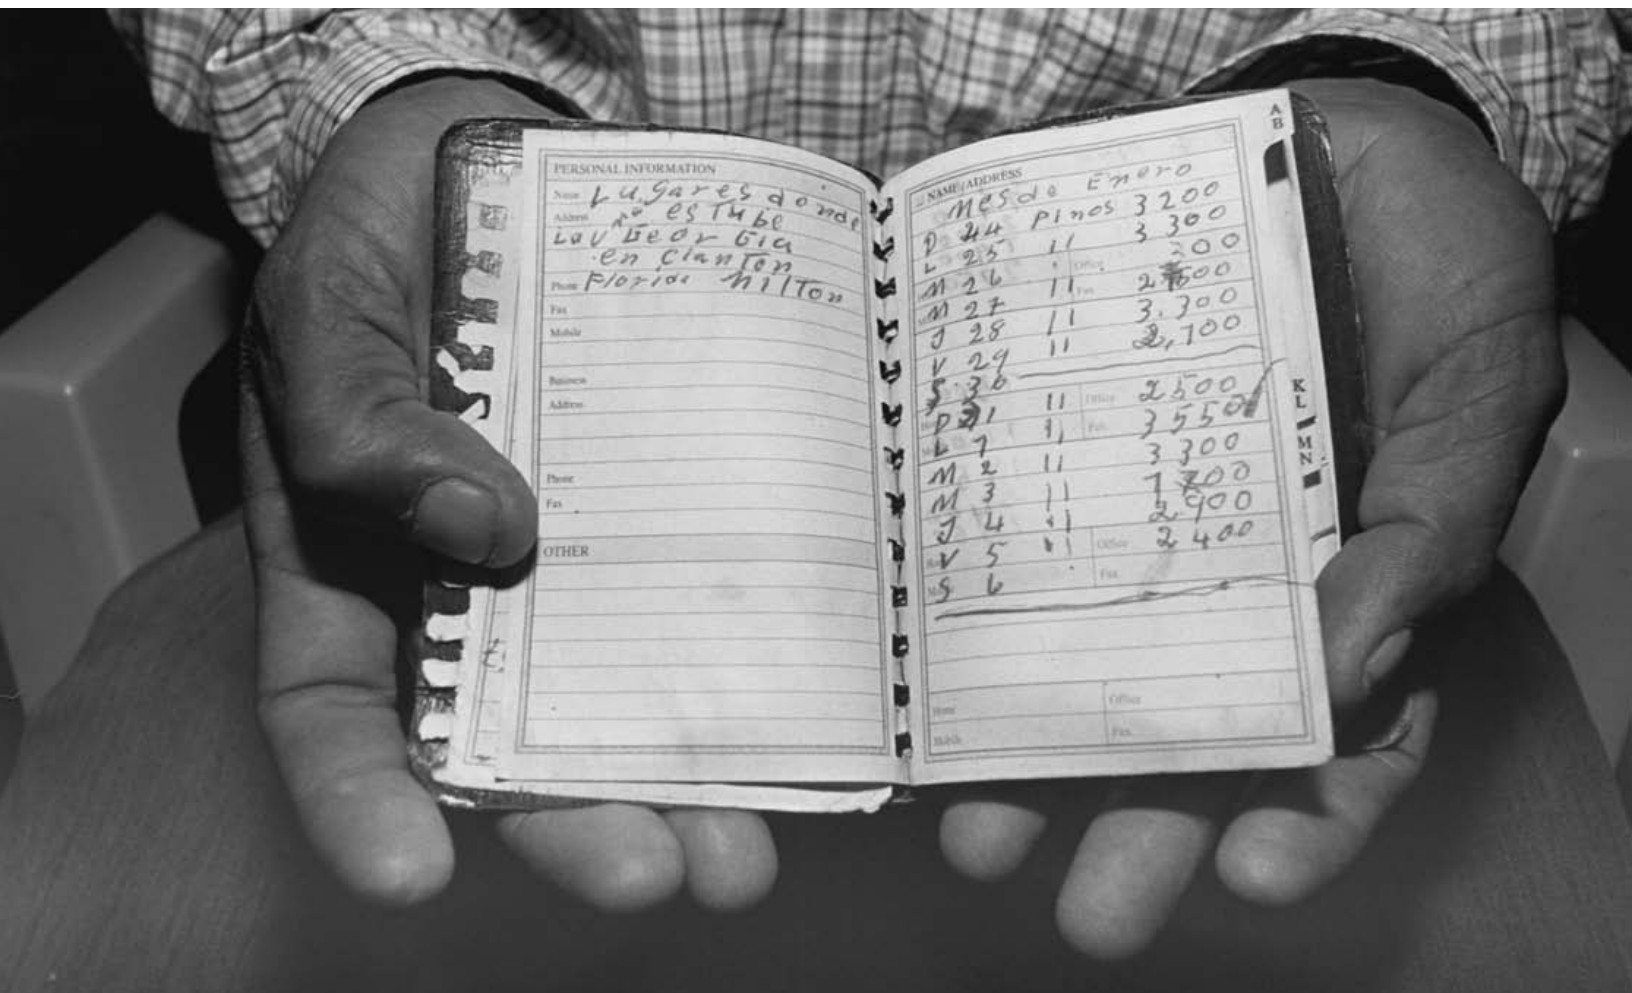 PERSONAL INFORMATION
Name Lugares donde
Address estube
Geor Gia
en Clanton
Phone Florida Milton
Fax
Mobile
Business
Address
Phone
Fax
OTHER
A
B
NAME/ADDRESS
Mes de Enero
D 24 Pinos 3200
L 25 11 3300
M 26 11 Office 200
M 27 11 Fax 2500
J 28 11 3.300
V 29 11 2,700
S 30
D 31 11 Office 2500
L 1 11 Fax 3550
M 2 11 3300
M 3 11 1700
J 4 11 2900
V 5 11 Office 2400
S 6 Fax
Home Office
Mobile Fax
K
L
M
N